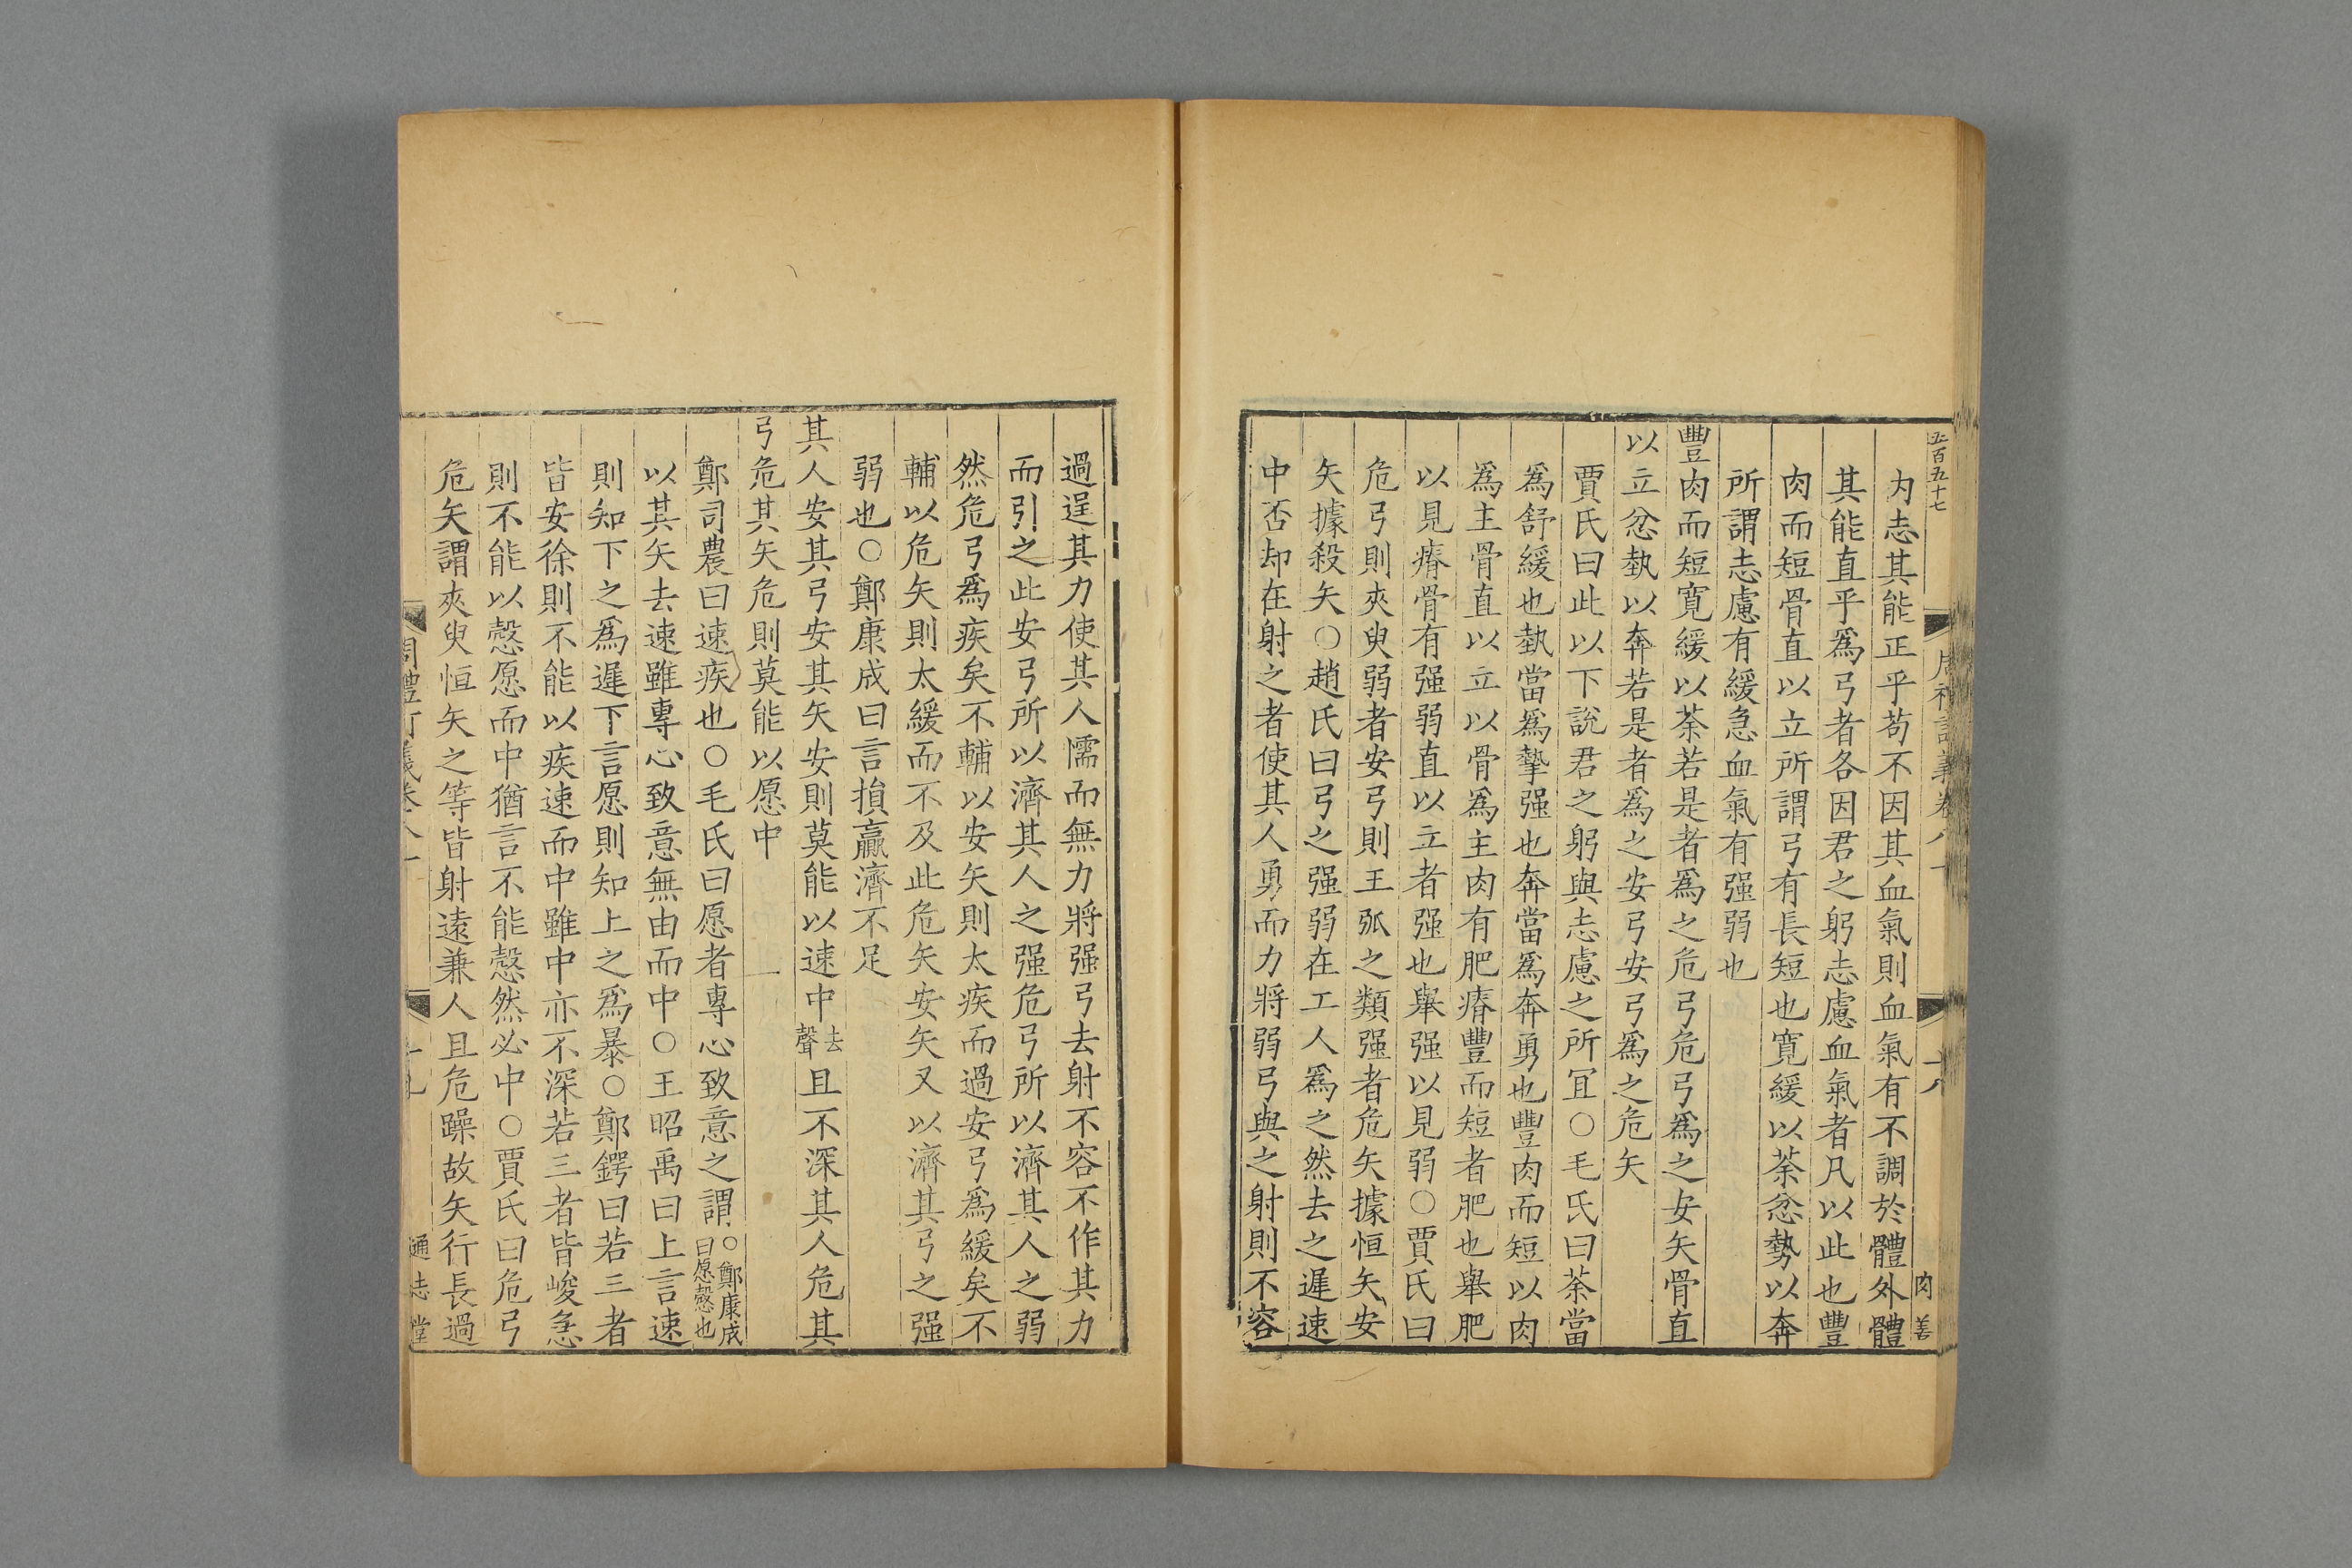 五百五十七
内志其能正乎苟不因其血氣則血氣有不調於體外體
其能直乎爲弓者各因君之躬志慮血氣者凡以此也豐
肉而短骨直以立所謂弓有長短也寬緩以荼忿勢以奔
所謂志慮有緩急血氣有强弱也
豐肉而短寬緩以荼若是者爲之危弓危弓爲之安矢骨直
以立忿埶以奔若是者爲之安弓安弓爲之危矢
賈氏曰此以下說君之躬與志慮之所宜○毛氏曰荼當
爲舒緩也埶當爲摯强也奔當爲奔勇也豐肉而短以肉
爲主骨直以立以骨爲主肉有肥瘠豐而短者肥也舉肥
以見瘠骨有强弱直以立者强也舉强以見弱○賈氏曰
危弓則夾臾弱者安弓則王弧之類强者危矢據恒矢安
矢據殺矢○趙氏曰弓之强弱在工人爲之然去之遲速
中否却在射之者使其人勇而力將弱弓與之射則不容
肉 善
過逞其力使其人懦而無力將强弓去射不容不作其力
而引之此安弓所以濟其人之强危弓所以濟其人之弱
然危弓爲疾矣不輔以安矢則太疾而過安弓爲緩矣不
輔以危矢則太緩而不及此危矢安矢又以濟其弓之强
弱也○鄭康成曰言損贏濟不足
其人安其弓安其矢安則莫能以速中去聲且不深其人危其
弓危其矢危則莫能以愿中
鄭司農曰速疾也○毛氏曰愿者專心致意之謂○鄭康成曰愿慤也
以其矢去速雖專心致意無由而中○王昭禹曰上言速
則知下之爲遲下言愿則知上之爲暴○鄭鍔曰若三者
皆安徐則不能以疾速而中雖中亦不深若三者皆峻急
則不能以慤愿而中猶言不能慤然必中○賈氏曰危弓
危矢謂夾臾恒矢之等皆射遠兼人且危躁故矢行長過
通志堂